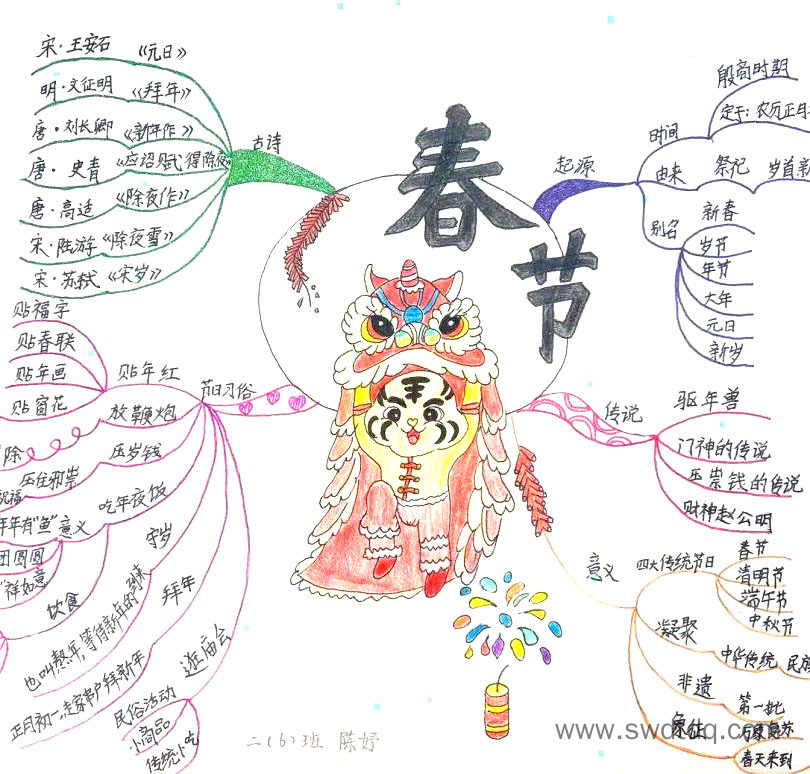 春节
古诗
宋·王安石 《元日》
明·文征明 《拜年》
唐·刘长卿 《新年作》
唐·史青 《应诏赋得除夜》
唐·高适 《除夜作》
宋·陆游 《除夜雪》
宋·苏轼 《守岁》
起源
时间
殷商时期
定于:农历正月
由来 祭祀 岁首新
别名
新春
岁节
年节
大年
元日
新岁
节日习俗
贴年红
贴福字
贴春联
贴年画
贴窗花
放鞭炮
除
压岁钱
压住邪祟
祝福
吃年夜饭
意义
年年有"鱼"
团圆圆
祥如意
饮食
守岁
也叫熬年,等待新年的到来
拜年
正月初一,走家串户拜新年
逛庙会
民俗活动
小商品
传统小吃
传说
驱年兽
门神的传说
压祟钱的传说
财神赵公明
意义
四大传统节日
春节
清明节
端午节
中秋节
凝聚 中华传统 民族
非遗 第一批
象征
春天来到
二(6)班 陈妤